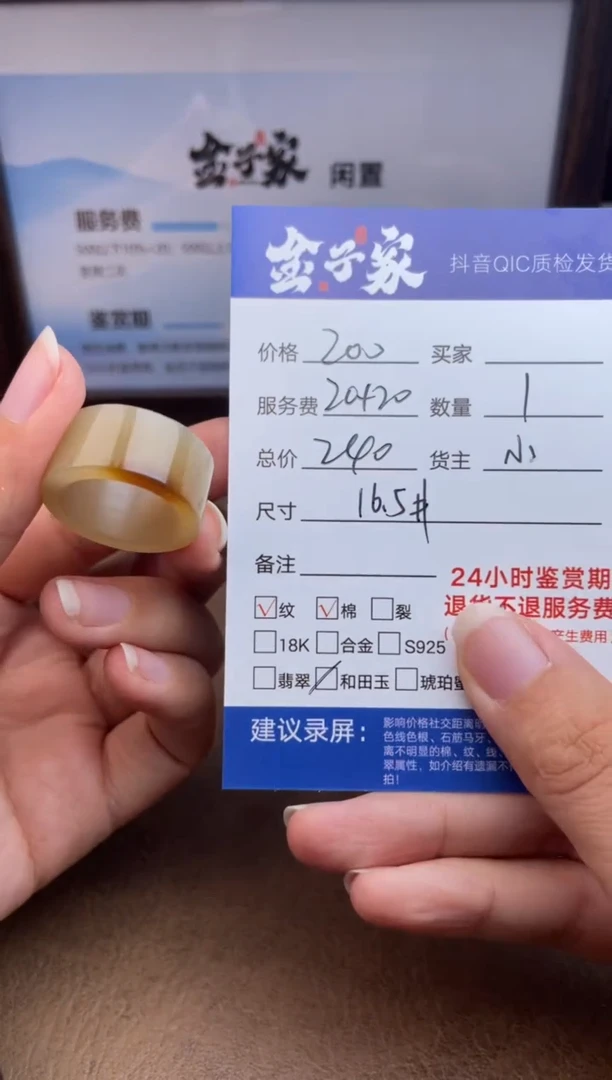 金子家 闲置
服务费
鉴赏期
金子家 抖音QIC质检发货
价格 200 买家
服务费 20+20 数量 1
总价 240 货主 小
尺寸 16.5#
备注
24小时鉴赏期
退货不退服务费
产生费用
纹 棉 裂
18K 合金 S925
翡翠 和田玉 琥珀蜜
建议录屏：
影响价格社交距离
色线色根、石筋马牙
离不明显的棉、纹、线、
翠属性，如介绍有遗漏不
拍！